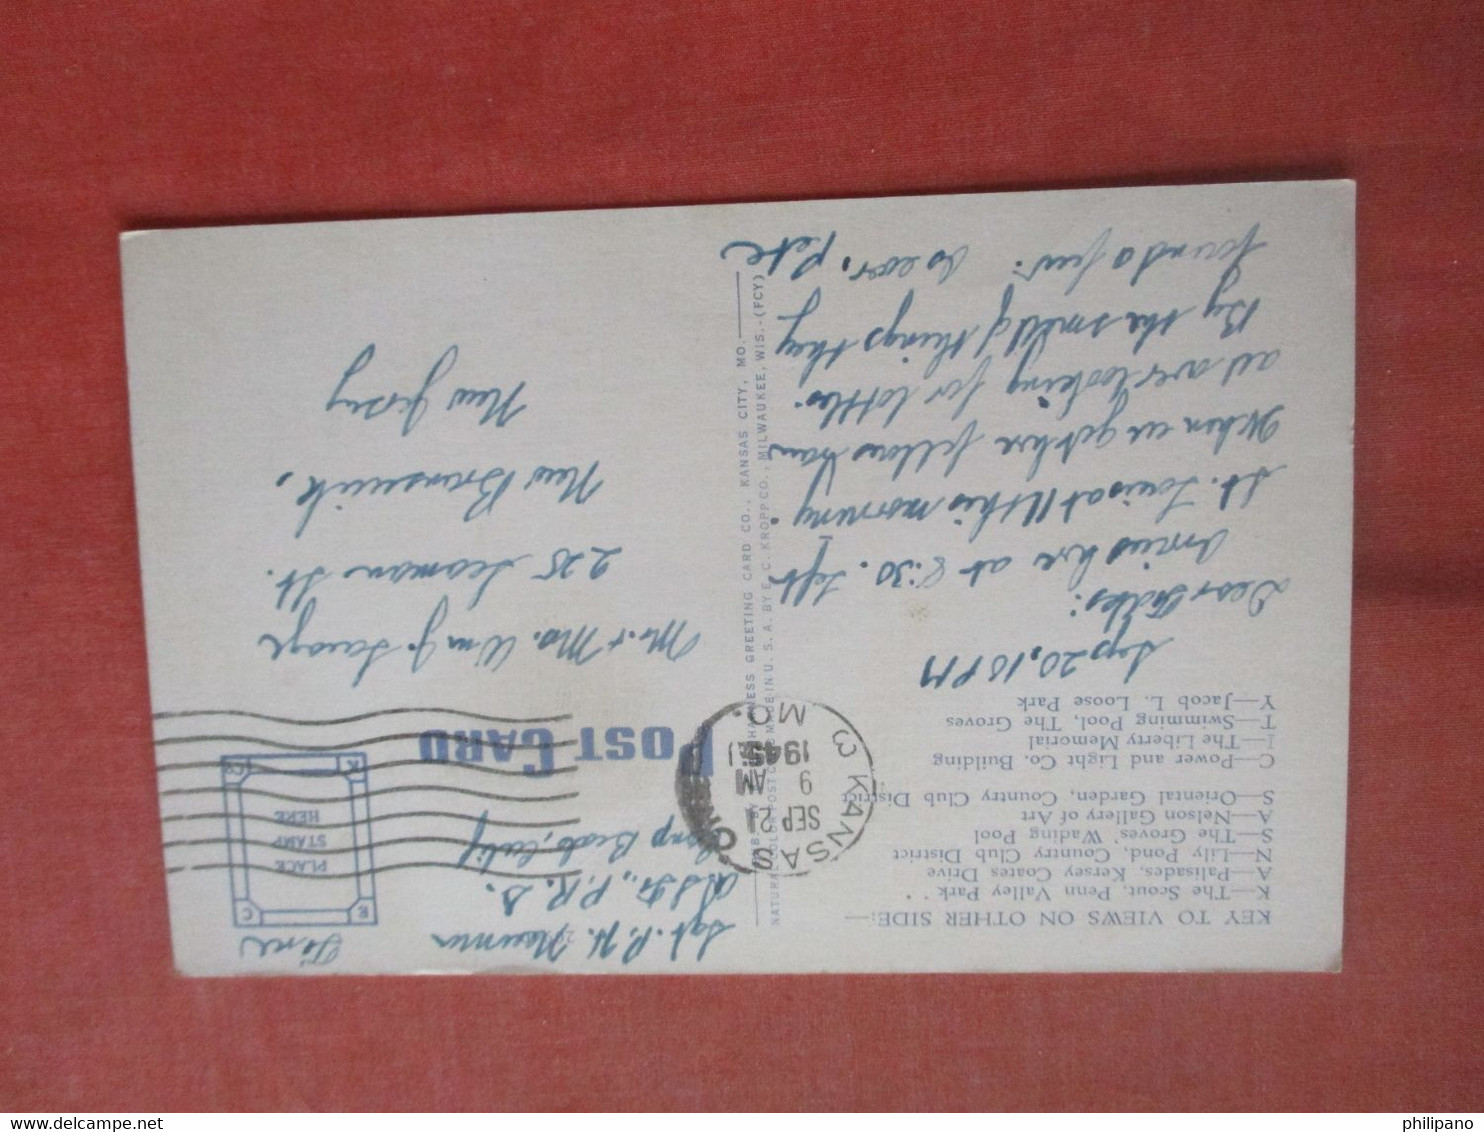 KEY TO VIEWS ON OTHER SIDE:—
K—The Scout, Penn Valley Park
A—Palisades, Kersey Coates Drive
N—Lily Pond, Country Club District
S—The Groves' Wading Pool
A—Nelson Gallery of Art
S—Oriental Garden, Country Club District
C—Power and Light Co. Building
I—The Liberty Memorial
T—Swimming Pool, The Groves
Y—Jacob L. Loose Park
Sep 20, 10 PM
Dear Folks:
Arrived here at 8:30. Left
St. Louis at 11 this morning
When we got here fellows ran
all over looking for bottles.
By the smell of things they
found a few. As ever, Pete
PUB. BY HARKNESS GREETING CARD CO., KANSAS CITY, MO.
NATURAL COLOR POST CARD MADE IN U. S. A. BY E. C. KROPP CO., MILWAUKEE, WIS.—(FCY)
Sgt. P. H.
P. R. D.
Camp Beale, Calif
Free
PLACE
STAMP
HERE
E C K Co
POST CARD
KANSAS
MO.
SEP 21
9 AM
1945
3
Mr. & Mrs. Wm J. Savage
225 Seaman St.
New Brunswick,
New Jersey
philipano